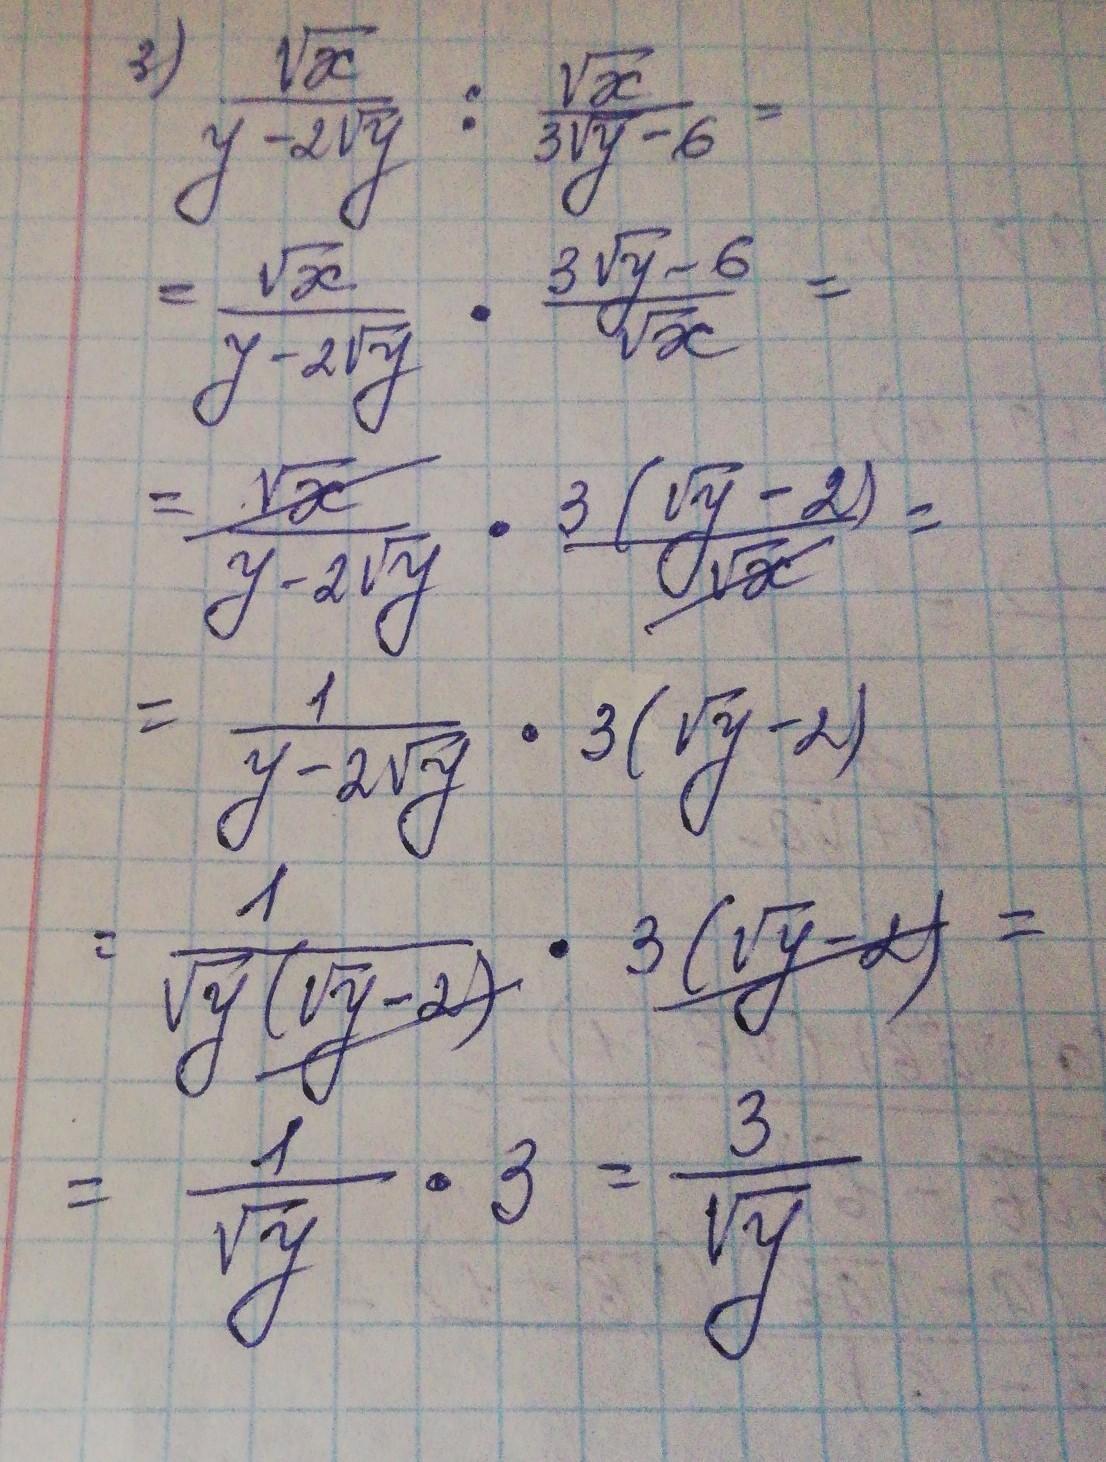 3) √x / (y - 2√y) : √x / (3√y - 6) =
= √x / (y - 2√y) · (3√y - 6) / √x =
= √x / (y - 2√y) · 3(√y - 2) / √x =
= 1 / (y - 2√y) · 3(√y - 2)
= 1 / (√y(√y - 2)) · 3(√y - 2) =
= 1 / √y · 3 = 3 / √y